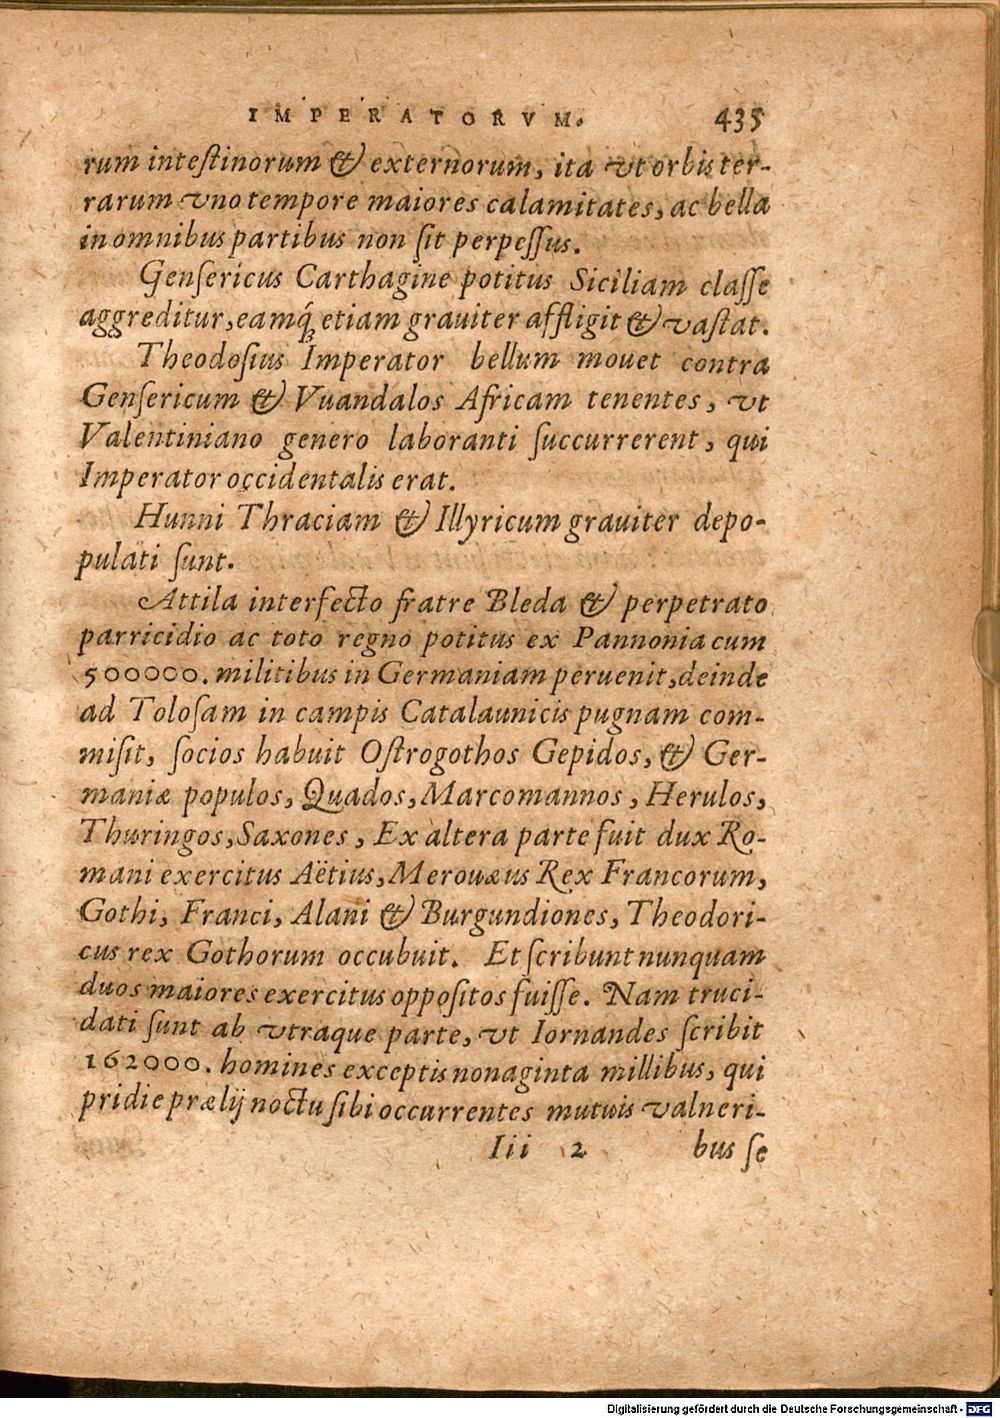 IMPERATORVM. 435
rum inteſtinorum & externorum, ita vt orbis ter-
rarum vno tempore maiores calamitates, ac bella
in omnibus partibus non ſit perpeſſus.
Genſericus Carthagine potitus Siciliam claſſe
aggreditur, eamq́ꝫ etiam grauiter affligit & vaſtat.
Theodoſius Imperator bellum mouet contra
Genſericum & Vuandalos Africam tenentes, vt
Valentiniano genero laboranti ſuccurrerent, qui
Imperator occidentalis erat.
Hunni Thraciam & Illyricum grauiter depo-
pulati ſunt.
Attila interfecto fratre Bleda & perpetrato
parricidio ac toto regno potitus ex Pannonia cum
500000. militibus in Germaniam peruenit, deinde
ad Toloſam in campis Catalaunicis pugnam com-
miſit, ſocios habuit Oſtrogothos Gepidos, & Ger-
maniæ populos, Quados, Marcomannos, Herulos,
Thuringos, Saxones, Ex altera parte fuit dux Ro-
mani exercitus Aëtius, Merouæus Rex Francorum,
Gothi, Franci, Alani & Burgundiones, Theodori-
cus rex Gothorum occubuit. Et ſcribunt nunquam
duos maiores exercitus oppoſitos fuiſſe. Nam truci-
dati ſunt ab vtraque parte, vt Iornandes ſcribit
162000. homines exceptis nonaginta millibus, qui
pridie prælij noctu ſibi occurrentes mutuis valneri-
Iii 2 bus ſe
Digitalisierung gefördert durch die Deutsche Forschungsgemeinschaft - DFG